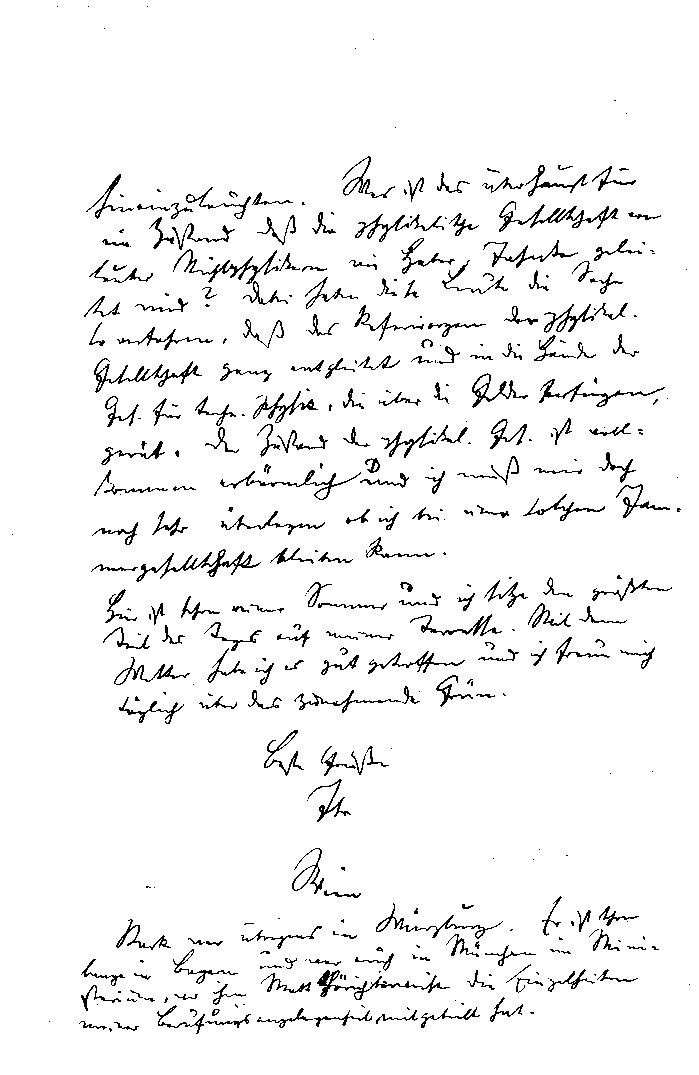 hineinzuleuchten. Was ist das überhaupt für
ein Zustand daß die physikalische Gesellschaft von
lauter Nichtphysikern wie gelei-
tet wird? Dabei haben diese Leute die Sache
so verfahren, daß das Referiorgan der physikal.
Gesellschaft ganz entgleitet und in die Hände der
Ges. für techn. Physik, die über die Gelder verfügen,
gerät. Der Zustand der physikal. Ges. ist voll-
kommen erbärmlich und ich muß mir doch
noch sehr überlegen ob ich bei einer solchen Jam-
mergesellschaft bleiben kann.
Hier ist schon reiner Sommer und ich sitze den größten
Teil des Tages auf meiner Terrasse. Mit dem
Wetter habe ich es gut getroffen und ich freue mich
täglich über das zunehmende Grün.
Beste Grüße
Ihr
Wien
Stark war übrigens in Würzburg. Er ist schon
lange in Bayern und war auch in München im Mini-
sterium, wo ihm die Einzelheiten
meiner Berufungsangelegenheit mitgeteilt hat.